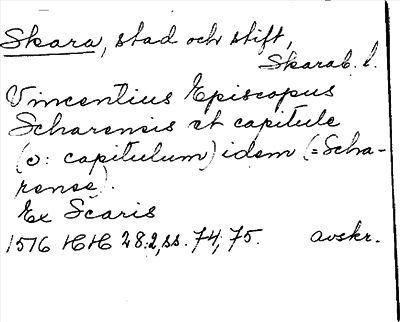 Skara, stad och stift,
Skarab. l.
Vincentius Episcopus
Scharensis et capitule
(ɔ: capitulum) idem (=Scha-
rense).
Ex Scaris
1516 HH 28:2, ss. 74, 75. avskr.